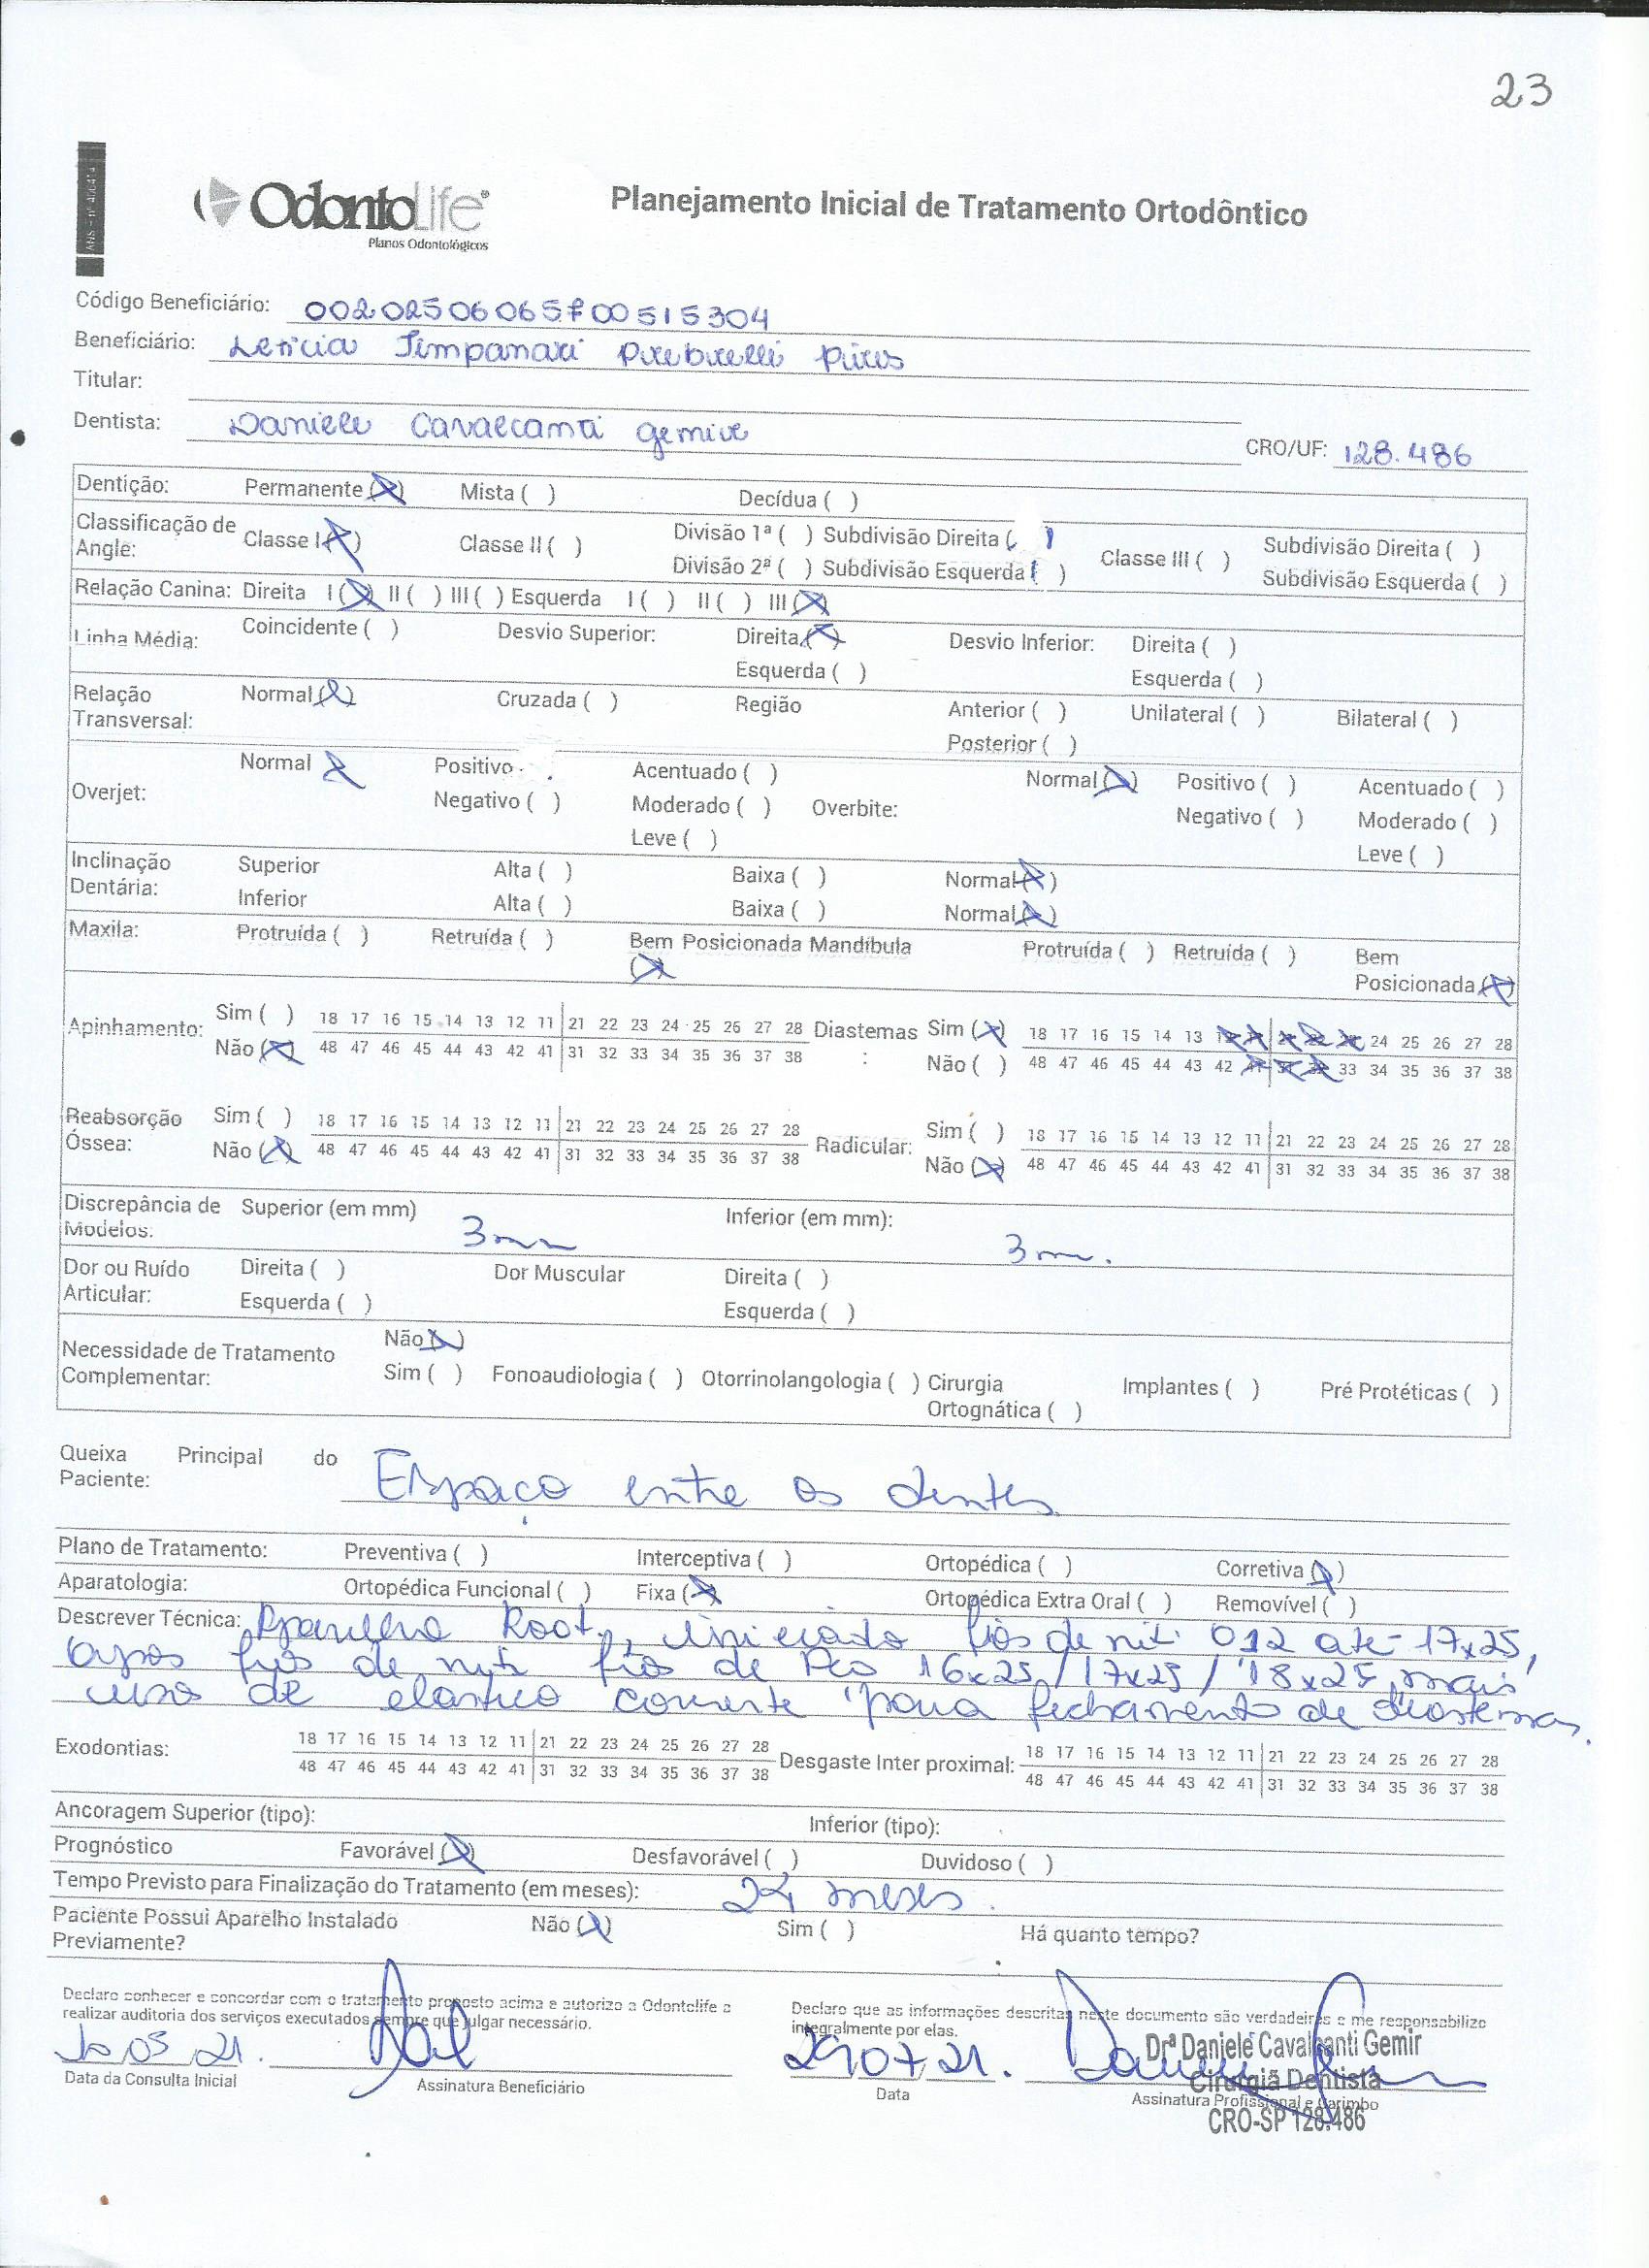 23
OdontoLife®
Planos Odontológicos
Planejamento Inicial de Tratamento Ortodôntico
Código Beneficiário: 00202506065700515304
Beneficiário: Leticia Timpanari Pires
Titular:
Dentista: Daniele Cavalcanti Gemir CRO/UF: 128.486
Dentição: Permanente (X) Mista ( ) Decídua ( )
Classificação de Angle: Classe I (X) Classe II ( ) Divisão 1ª ( ) Subdivisão Direita ( ) Classe III ( ) Subdivisão Direita ( )
Divisão 2ª ( ) Subdivisão Esquerda ( ) Subdivisão Esquerda ( )
Relação Canina: Direita I (X) II ( ) III ( ) Esquerda I ( ) II ( ) III (X)
Linha Média: Coincidente ( ) Desvio Superior: Direita (X) Desvio Inferior: Direita ( )
Esquerda ( ) Esquerda ( )
Relação Transversal: Normal (X) Cruzada ( ) Região Anterior ( ) Unilateral ( ) Bilateral ( )
Posterior ( )
Overjet: Normal X Positivo Acentuado ( ) Overbite: Normal (X) Positivo ( ) Acentuado ( )
Negativo ( ) Moderado ( ) Negativo ( ) Moderado ( )
Leve ( ) Leve ( )
Inclinação Dentária: Superior Alta ( ) Baixa ( ) Normal (X)
Inferior Alta ( ) Baixa ( ) Normal (X)
Maxila: Protruída ( ) Retruída ( ) Bem Posicionada (X) Mandíbula Protruída ( ) Retruída ( ) Bem Posicionada (X)
Apinhamento: Sim ( ) 18 17 16 15 14 13 12 11 21 22 23 24 25 26 27 28 Diastemas: Sim (X) 18 17 16 15 14 13 12 11 21 22 23 24 25 26 27 28
Não (X) 48 47 46 45 44 43 42 41 31 32 33 34 35 36 37 38 Não ( ) 48 47 46 45 44 43 42 41 31 32 33 34 35 36 37 38
Reabsorção Óssea: Sim ( ) 18 17 16 15 14 13 12 11 21 22 23 24 25 26 27 28 Radicular: Sim ( ) 18 17 16 15 14 13 12 11 21 22 23 24 25 26 27 28
Não (X) 48 47 46 45 44 43 42 41 31 32 33 34 35 36 37 38 Não (X) 48 47 46 45 44 43 42 41 31 32 33 34 35 36 37 38
Discrepância de Modelos: Superior (em mm) 3mm Inferior (em mm): 3mm.
Dor ou Ruído Articular: Direita ( ) Dor Muscular Direita ( )
Esquerda ( ) Esquerda ( )
Necessidade de Tratamento Complementar: Não (X)
Sim ( ) Fonoaudiologia ( ) Otorrinolangologia ( ) Cirurgia Ortognática ( ) Implantes ( ) Pré Protéticas ( )
Queixa Principal do Paciente: Espaço entre os dentes
Plano de Tratamento: Preventiva ( ) Interceptiva ( ) Ortopédica ( ) Corretiva (X)
Aparatologia: Ortopédica Funcional ( ) Fixa (X) Ortopédica Extra Oral ( ) Removível ( )
Descrever Técnica: Aparelho Root., iniciado fios de niti 012 até 17x25,
após fios de niti fios de Aço 16x25/17x25/18x25, mais
uso de elastico corrente para fechamento de diastemas.
Exodontias: 18 17 16 15 14 13 12 11 21 22 23 24 25 26 27 28 Desgaste Inter proximal: 18 17 16 15 14 13 12 11 21 22 23 24 25 26 27 28
48 47 46 45 44 43 42 41 31 32 33 34 35 36 37 38 48 47 46 45 44 43 42 41 31 32 33 34 35 36 37 38
Ancoragem Superior (tipo): Inferior (tipo):
Prognóstico Favorável (X) Desfavorável ( ) Duvidoso ( )
Tempo Previsto para Finalização do Tratamento (em meses): 24 meses
Paciente Possui Aparelho Instalado Previamente? Não (X) Sim ( ) Há quanto tempo?
Declaro conhecer e concordar com o tratamento proposto acima e autorizo a Odontolife a
realizar auditoria dos serviços executados sempre que julgar necessário.
Declaro que as informações descritas neste documento são verdadeiras e me responsabilizo
integralmente por elas.
Drª Daniele Cavalcanti Gemir
Cirurgiã Dentista
CRO-SP 128.486
05 21. 07 21.
Data da Consulta Inicial Assinatura Beneficiário Data Assinatura Profissional e Carimbo